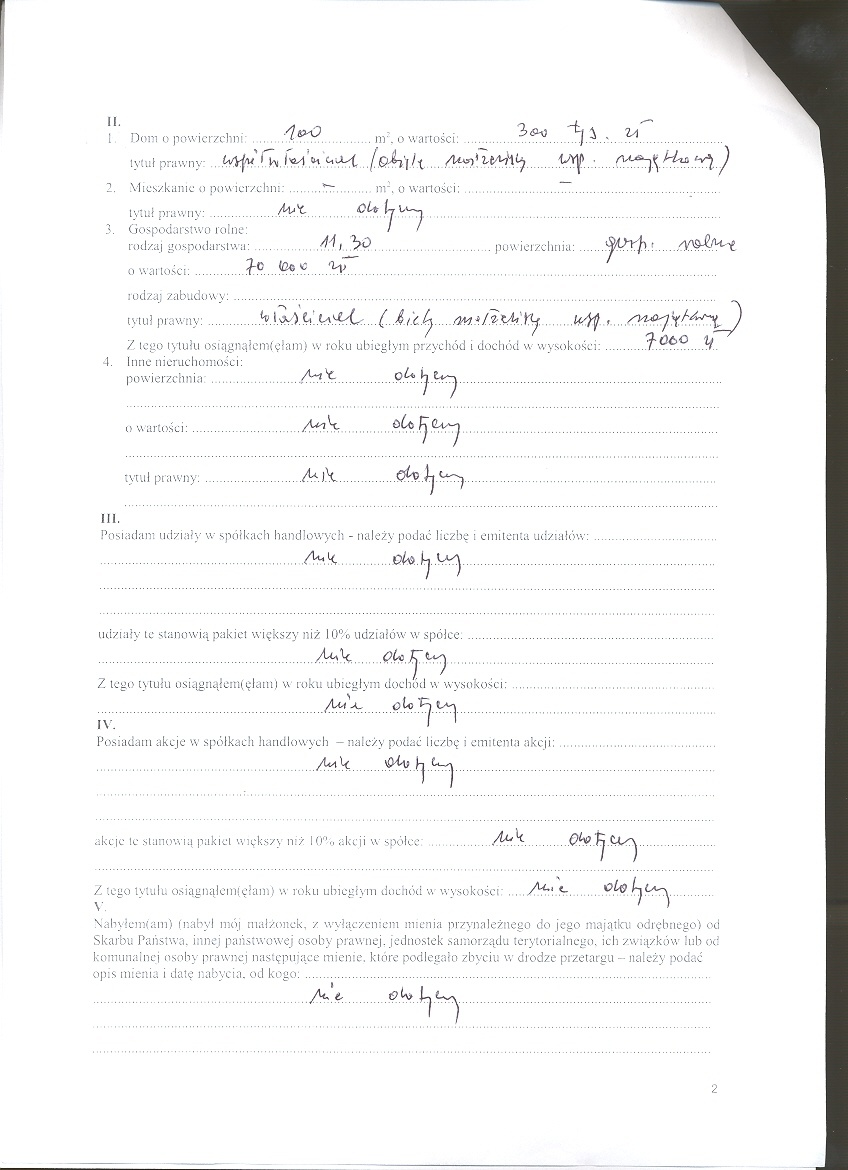 II.
1. Dom o powierzchni: 100 m², o wartości: 300 tyś. zł
tytuł prawny: współwłaściciel (objęte małżeńską wsp. majątkową)
2. Mieszkanie o powierzchni: – m², o wartości: –
tytuł prawny: nie dotyczy
3. Gospodarstwo rolne:
rodzaj gospodarstwa: 11,30 powierzchnia: gosp. rolne
o wartości: 70 000 zł
rodzaj zabudowy:
tytuł prawny: właściciel ( małżeńską wsp. majątkową)
Z tego tytułu osiągnąłem(ęłam) w roku ubiegłym przychód i dochód w wysokości: 7000 zł
4. Inne nieruchomości:
powierzchnia: nie dotyczy
o wartości: nie dotyczy
tytuł prawny: nie dotyczy
III.
Posiadam udziały w spółkach handlowych - należy podać liczbę i emitenta udziałów:
nie dotyczy
udziały te stanowią pakiet większy niż 10% udziałów w spółce:
nie dotyczy
Z tego tytułu osiągnąłem(ęłam) w roku ubiegłym dochód w wysokości:
nie dotyczy
IV.
Posiadam akcje w spółkach handlowych – należy podać liczbę i emitenta akcji:
nie dotyczy
akcje te stanowią pakiet większy niż 10% akcji w spółce: nie dotyczy
Z tego tytułu osiągnąłem(ęłam) w roku ubiegłym dochód w wysokości: nie dotyczy
V.
Nabyłem(am) (nabył mój małżonek, z wyłączeniem mienia przynależnego do jego majątku odrębnego) od
Skarbu Państwa, innej państwowej osoby prawnej, jednostek samorządu terytorialnego, ich związków lub od
komunalnej osoby prawnej następujące mienie, które podlegało zbyciu w drodze przetargu – należy podać
opis mienia i datę nabycia, od kogo:
nie dotyczy
2